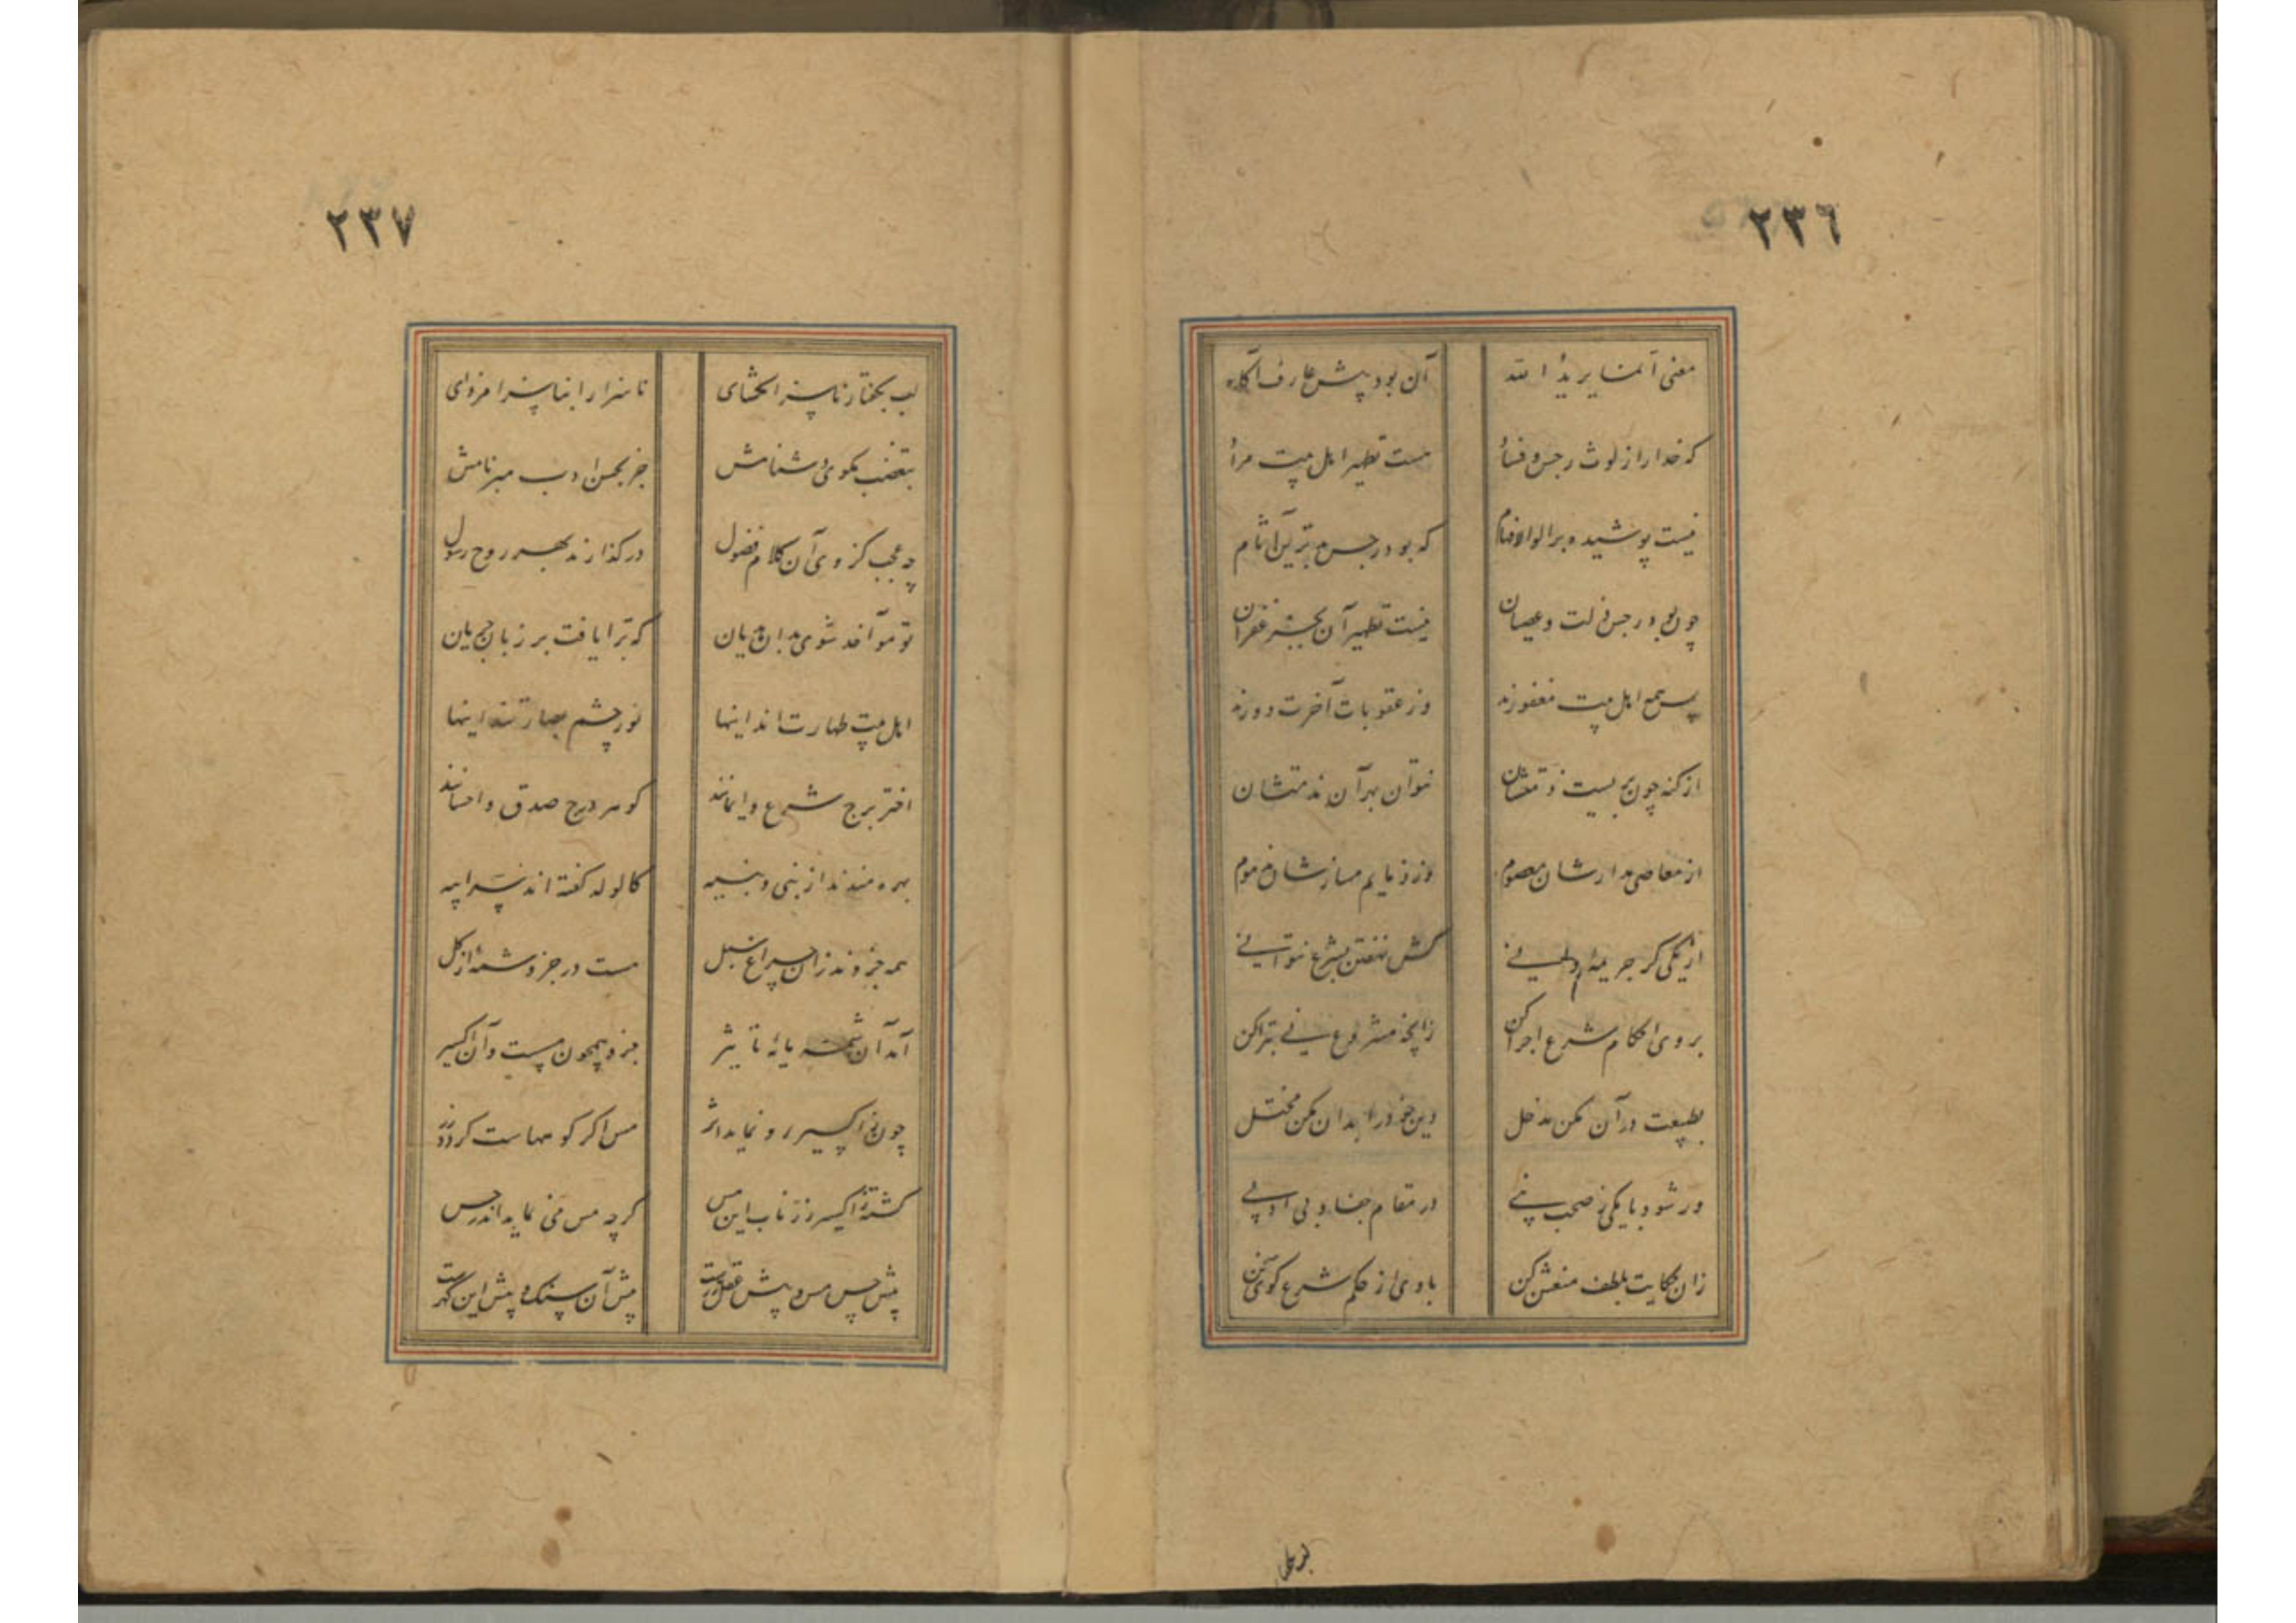 ٢٣٦
معنی انما یرید الله آن بود پیش عارف آگاه
که خدا را از لوث رجس و فساد هست تطهیر اهل بیت مراد
نیست پوشیده بر اولوالافهام که بود رجس بدترین آثام
چون بود رجس زلت و عصیان نیست تطهیر آن بجز غفران
پس همه اهل بیت مغفورند وز عقوبات آخرت دورند
از گنه چون بریست ذمتشان نتوان بهر آن مذمتشان
از معاصی مدارشان معصوم وز ذمایم مسازشان مذموم
از یکی گر جریمه دانی کش نهفتن بشرع نتوانی
بر وی احکام شرع اجرا کن زانچه مشروع نی تبرا کن
بطبیعت در آن مکن مدخل دین خود را بدان مکن مختل
ور شود با یکی ز صحب نبی در مقام جفا و بی ادبی
زان حکایت بلطف منعش کن با وی از حکم شرع گوی سخن
٢٣٧
لب بگفتار ناسزا مگشای ناسزا را بناسزا مفزای
بتعصب مگوی دشنامش جز بحسن ادب مبر نامش
چه عجب کز وی آن کلام فضول درگذارند بهر روح رسول
تو مؤاخذ شوی بدان هذیان که ترا یافت بر زبان جریان
اهل بیت طهارت اند اینها نور چشم بصارتند اینها
اختر برج شرع و ایمانند گوهر درج صدق و احسانند
بهره مندند از نبی و نبیه کالولد گفته اند سر ابیه
همه جزوند زان چراغ سبل هست در جزو شمه از کل
آمد آن شمه مایه تاثیر جزو همچون مس است و آن اکسیر
چون ز اکسیر رو نماید اثر مس اگر کوهها ست گردد زر
گشته ز اکسیر زر ناب این مس گرچه مس می نماید اندر حس
پیش حس مس و پیش عقل زرست پیش آن سنگ و پیش این گهرست